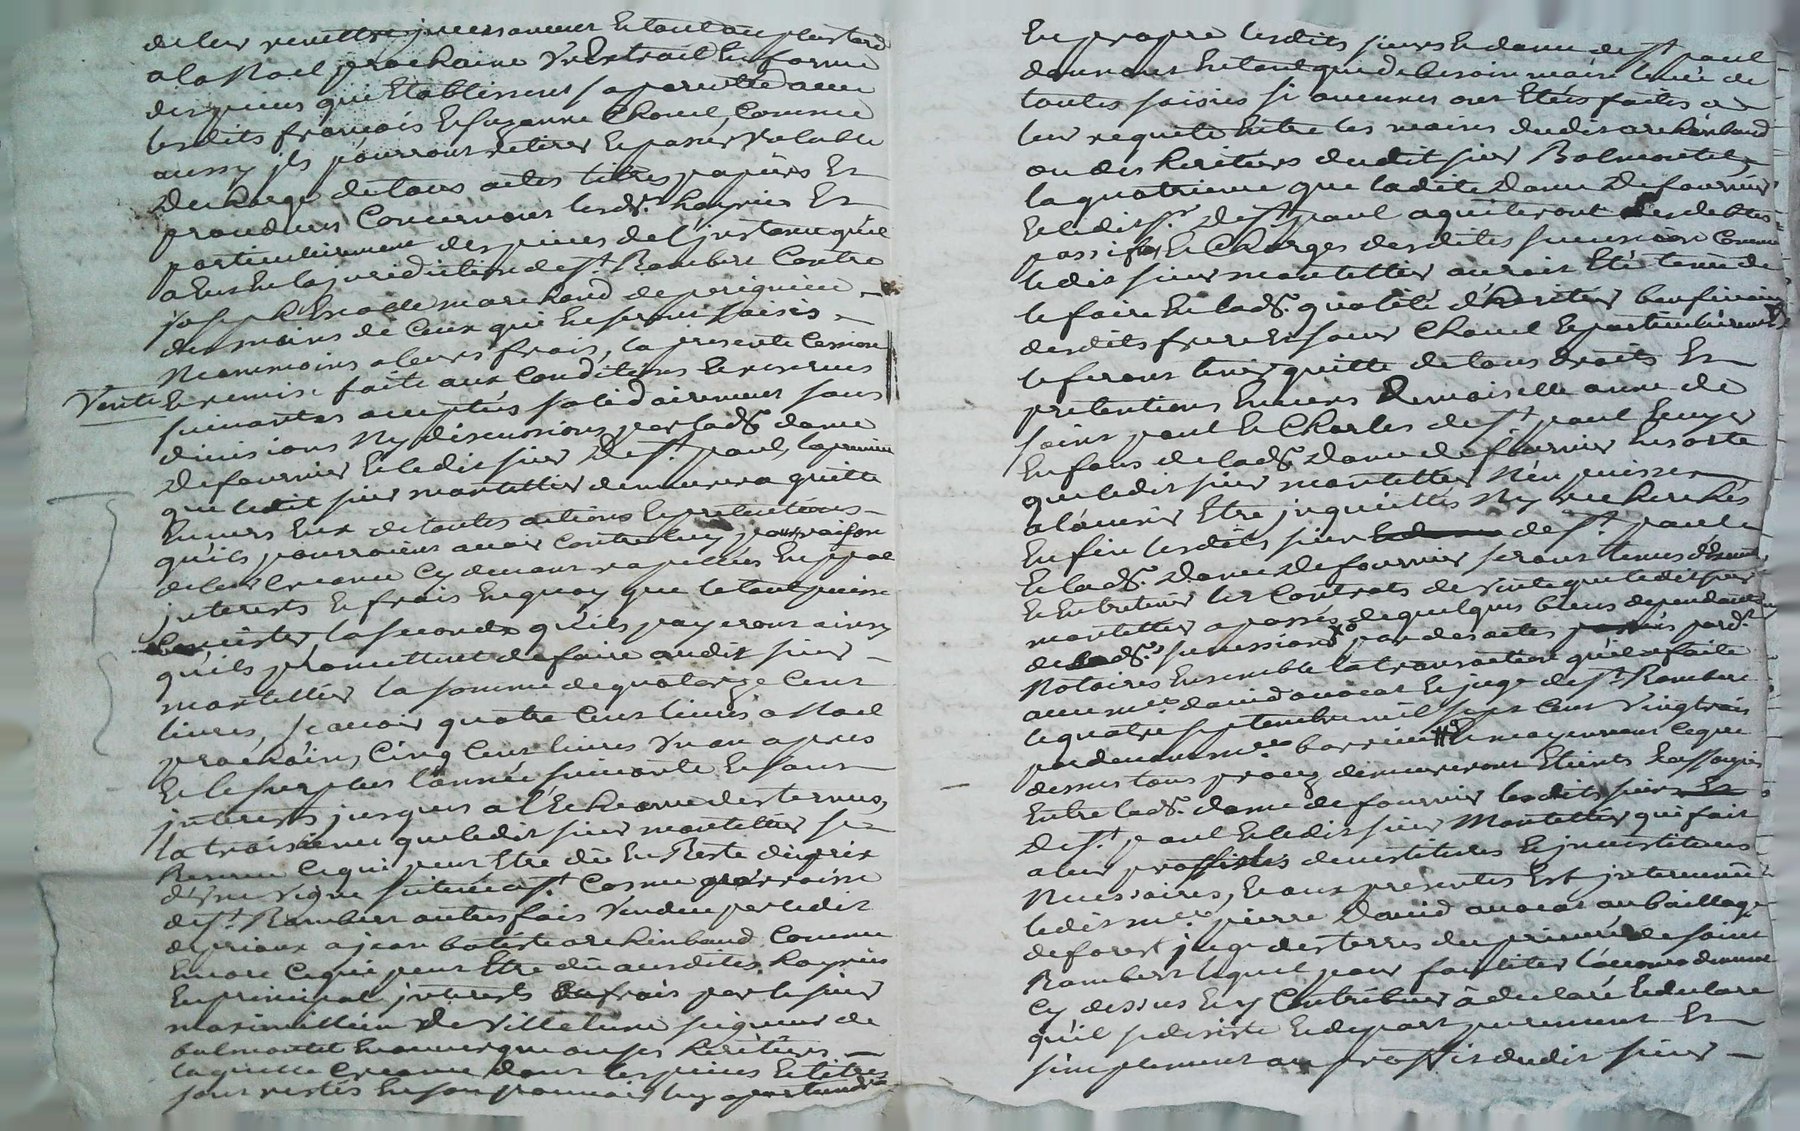 de leur remettre incessamment et tout au plus tard
a la Noel prochaine un Extrait en forme
des pieces qui Etablissent sa parenté avec
lesdits francois et Suzanne Chovel, Comme
aussy ils pourront retirer et passer valable
decharge de tous actes titres papiers Et
procedures Concernant lesd. hoyries Et
particulierement des pieces de l'instance qu'il
a Eu en la juridiction de st. Rambert Contre
joseph marchand de perignieu
des mains de Ceux qui En seront saisis
Neanmoins a leurs frais, la presente Cession
Vente Et remise faite aux Conditions Et reserves
suivantes acceptés solidairement sans
divisions Ny discussions par lad. dame
Defournier Et ledit sieur De st. paul, la premiere
que ledit sieur montellier demeurera quitte
Envers Eux de toutes actions Et pretentions
qu'ils pourroient avoir Contre luy pour raison
de leur Creance Cy devant rapellés En ppal
interests Et frais En quoy que le tout puisse
Consister, la seconde qu'ils payeront ainsy
qu'ils promettent de faire audit sieur
montellier la somme de quatorze Cent
livres, scavoir quatre Cent livres a Noel
prochain, Cinq Cent livres un an apres
Et le surplus l'année suivante Et sans
interests jusques a l'Echeance des termes,
la troisieme que ledit sieur montellier se
Reserve Ce qui peut Etre dû En Reste du prix
d'une vigne située a st. Cosme parroisse
de st. Rambert autres fois vendue par ledit
deprioux a jean batiste archimbaud Comme
Encore Ce qui peut Etre dû auxdites hoyries
En principal interests Et frais par le sieur
maximillien De Villelune seigneur de
balmontet En auvergne ou ses heritiers
laquelle Creance dont les pieces Et titres
sont restés En son pouvoir luy apartiendra
En propre lesdits sieurs Et dame de st. paul
donnant En tant que de besoin main levée de
toutes saisies si aucunes ont Etés faites a
leur requete Entre les mains dudit archimbaud
ou des heritiers dudit sieur Balmontet,
la quatrieme que ladite Dame Defournier
Et ledit sr. De st. paul aquiteront les debtes
passifs Et Charges desdites succession Comme
ledit sieur montellier auroit Eté tenu de
le faire En lad. qualité d'heritier beneficiaire
desdits frere Et soeur Chovel Et particulierement
le feront tenir quitte de tous droits Et
pretentions Envers Demoiselle anne de
saint paul Et Charles de st. paul Ecuyer
Enfans de lad. Dame de fournier En sorte
que ledit sieur montellier N'en puisse
a l'avenir Etre inquiettés Ny recherchés
Enfin lesdits sieur de st. paul
Et lad. Dame Defournier seront tenus
Et Entretenir les Contrats de vente que ledit sieur
montellier a passés de quelques biens dependants
de lad. succession par des actes pard.
Notaires Ensemble la transaction qu'il a faite
avec me. david avocat Et juge de st. Rambert
le quatre septembre mil sept Cent vingt trois
pardevant me. Et moyennant Ce que
dessus tous procez demeureront Eteints Et assoupis
Entre lad. dame de fournier lesdits sieurs
De st. paul Et ledit sieur Montellier qui fait
a leur proffit devestitures Et investitures
Necessaires, Et aux presentes Est intervenu
ledit me. pierre David avocat au baillage
de forest juge des terres du prieuré de saint
Rambert lequel pour faciliter l'accomodement
Cy dessus Et y Contribuer a declaré Et declare
qu'il se desiste Et depart purement Et
simplement au proffit dudit sieur